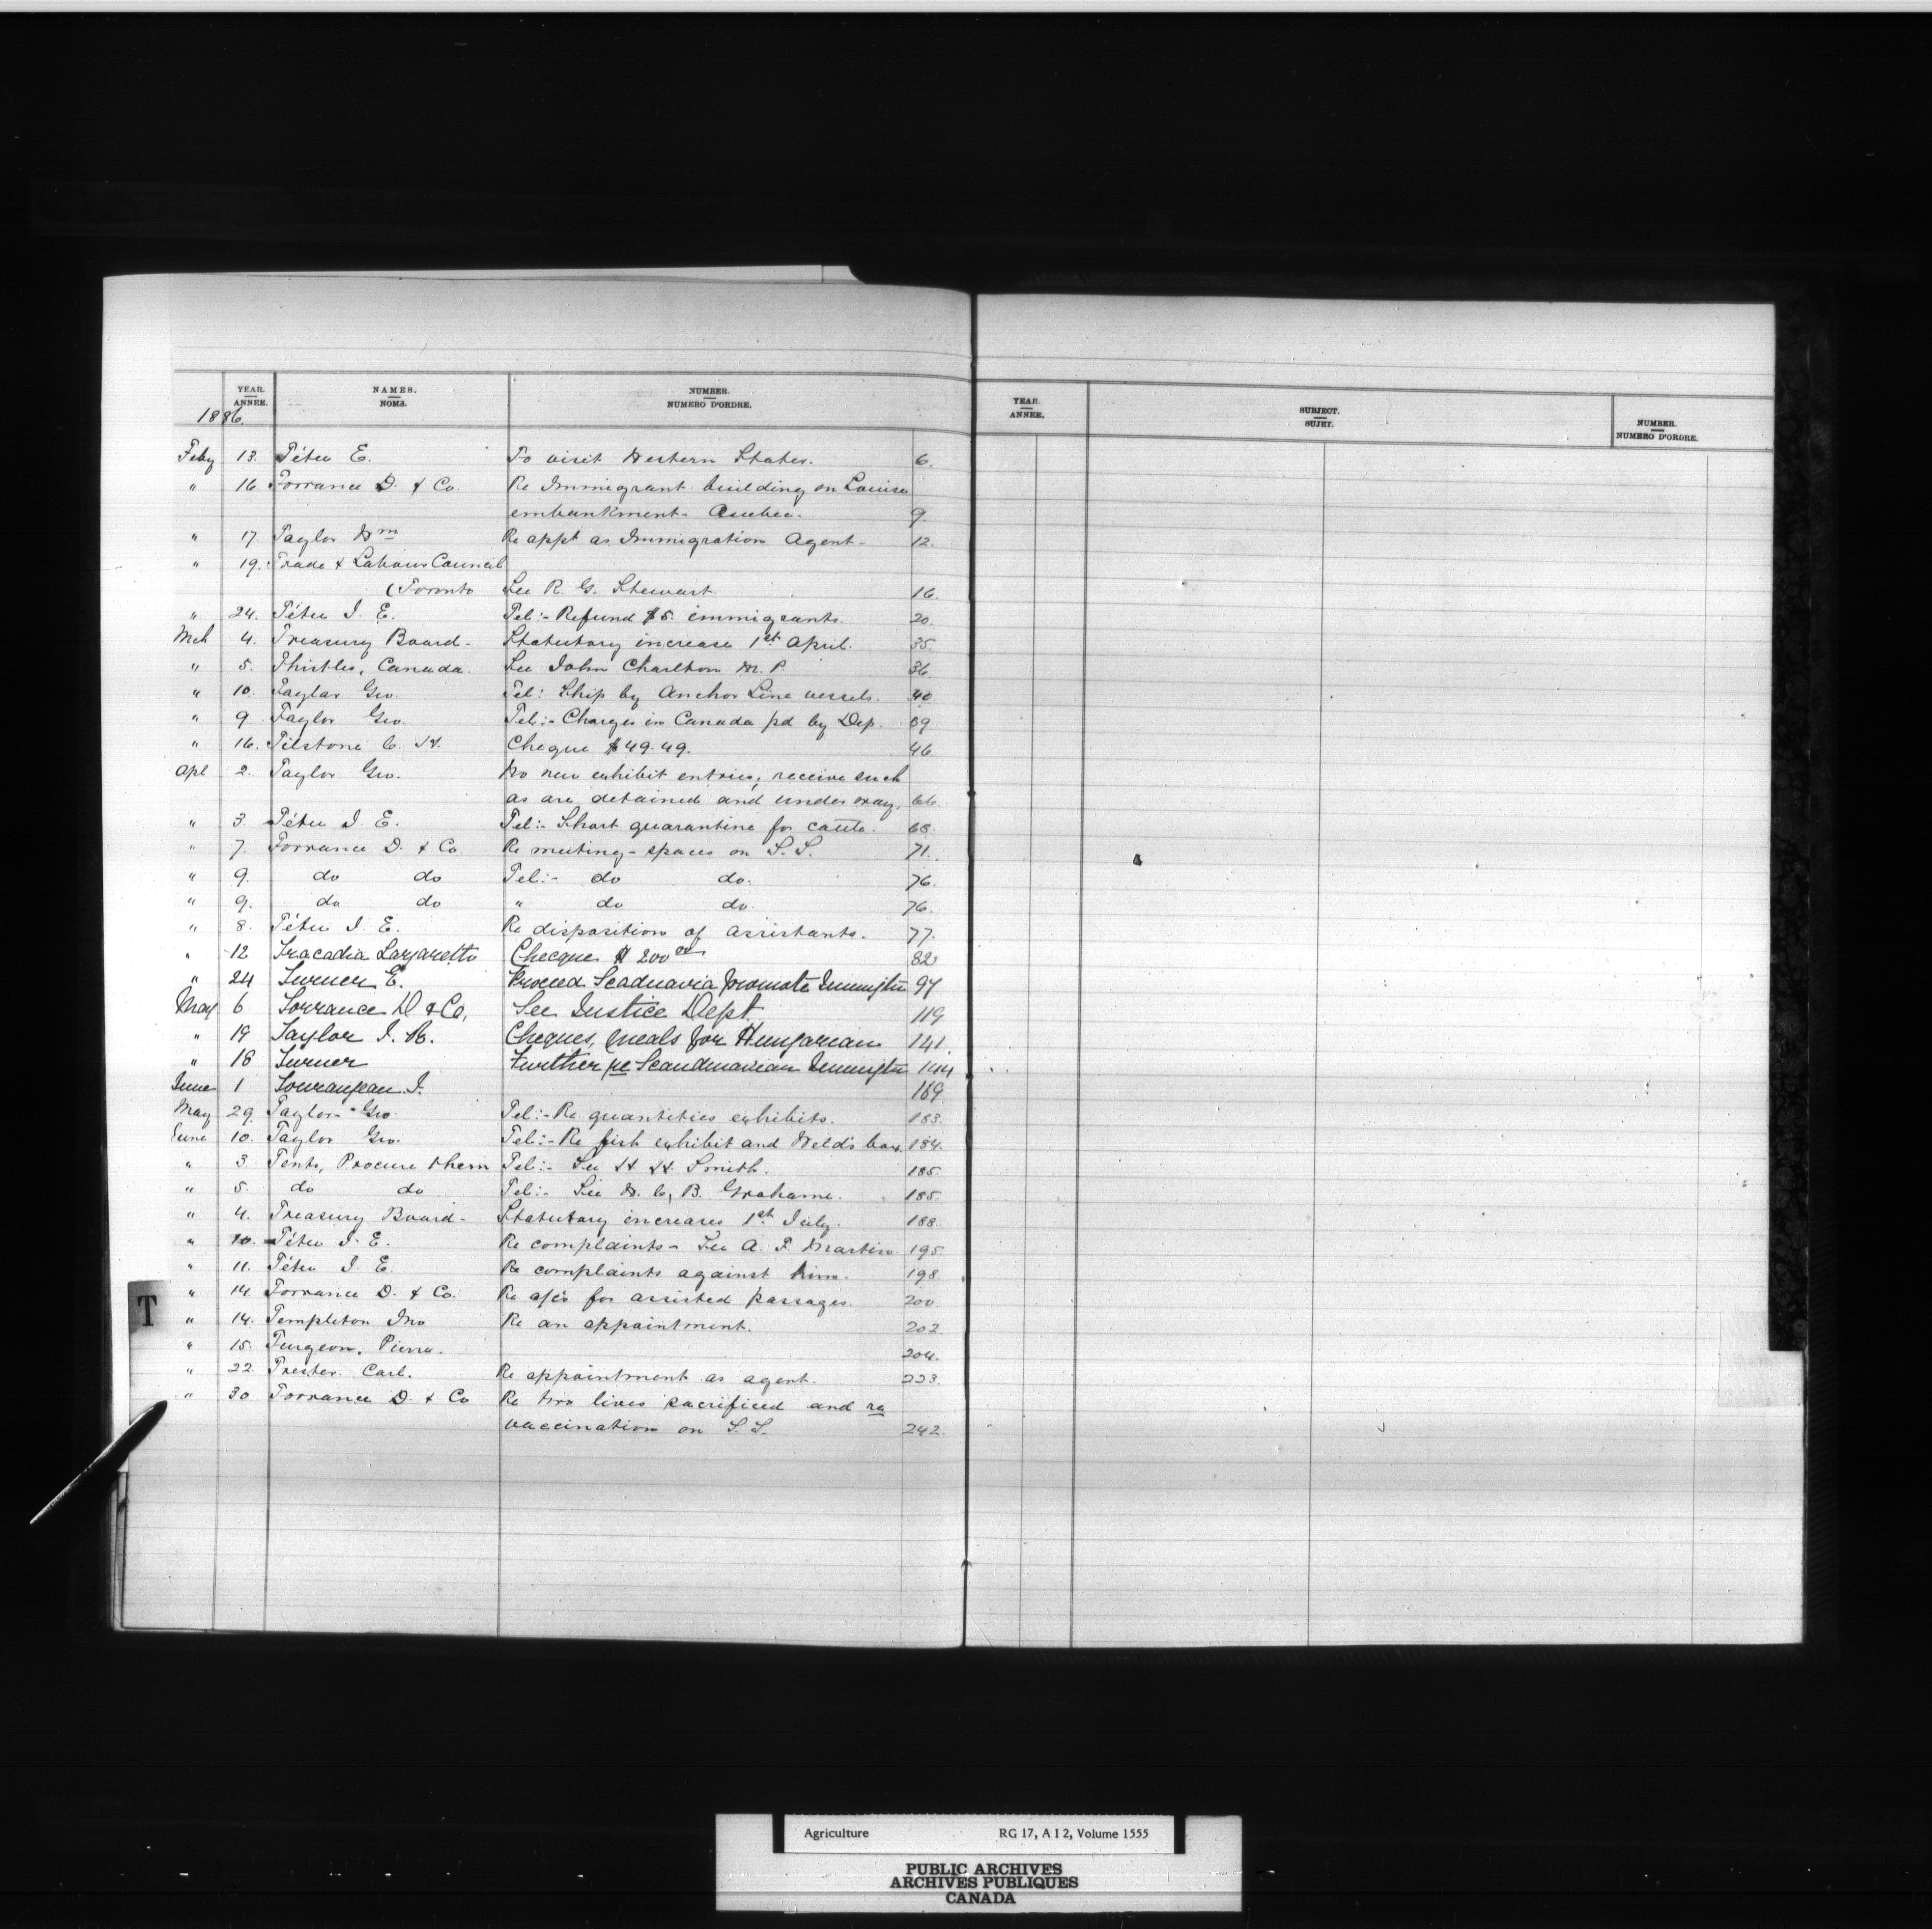 YEAR. ANNÉE. NAMES. NOMS. NUMBER. NUMERO D'ORDRE.
1886.
Feby 13. Tétu E. To visit Western States. 6.
" 16 Torrance D. & Co. Re Immigrant building on Louise
embankment - Quebec. 9.
" 17. Taylor Wm Re appt as Immigration Agent - 12.
" 19. Trade & Labour Council
(Toronto See R. G. Stewart. 16.
" 24. Tétu J. E. Tel:- Refund $5. immigrants. 20.
Mch 4. Treasury Board - Statutory increase 1st April. 35.
" 5. Thistles, Canada. See John Charlton M. P. 36
" 10. Taylor Geo. Tel: Ship by Anchor Line vessels. 40
" 9 Taylor Geo. Tel:- Charges in Canada pd by Dep. 39
" 16. Tilstone C. H. Cheque $49.49. 46
Apl 2. Taylor Geo. No new exhibit entries; receive such
as are detained and under way. 66.
" 3. Tétu J. E. Tel:- Short quarantine for cattle. 68.
" 7. Torrance D. & Co Re meeting - spaces on S.S. 71.
" 9. do do Tel:- do do. 76.
" 9. do do " do do. 76.
" 8. Tétu J. E. Re disposition of assistants. 77.
" 12 Tracadia Lazaretto Checque $200 00 82
" 24 Turner E. Proceed Scadnavia promote Immigtn 97
May 6 Torrance D & Co, See Justice Dept 119
" 19 Taylor J. R. Cheques, meals for Hungarian 141
" 18 Turner Further re Scandinavian Immigtn 144
June 1 Tourangeau J. 169
May 29. Taylor - Geo. Tel:- Re quantities exhibits. 183.
June 10. Taylor Geo. Tel:- Re fish exhibit and Weld's box. 184.
" 3. Tents, Procure them Tel:- See H. H. Smith. 185.
" 5. do do Tel:- See W. C. B. Grahame. 185.
" 4. Treasury Board - Statutory increases 1st July. 188.
" 10. Tétu J. E. Re complaints - See A. F. Martin. 195
" 11. Tétu J. E. Re complaints against him. 198.
" 14 Torrance D. & Co. Re a/cs for assisted passages. 200
" 14. Templeton Jno Re an appointment. 202
" 15. Turgeon, Pierre. 204.
" 22. Trester. Carl. Re appointment as agent. 223.
" 30 Torrance D. & Co Re two lives sacrificed and re
vaccination on S.S. 242.
T
YEAR. ANNÉE. SUBJECT. SUJET. NUMBER. NUMERO D'ORDRE.
Agriculture RG 17, A I 2, Volume 1555
PUBLIC ARCHIVES
ARCHIVES PUBLIQUES
CANADA